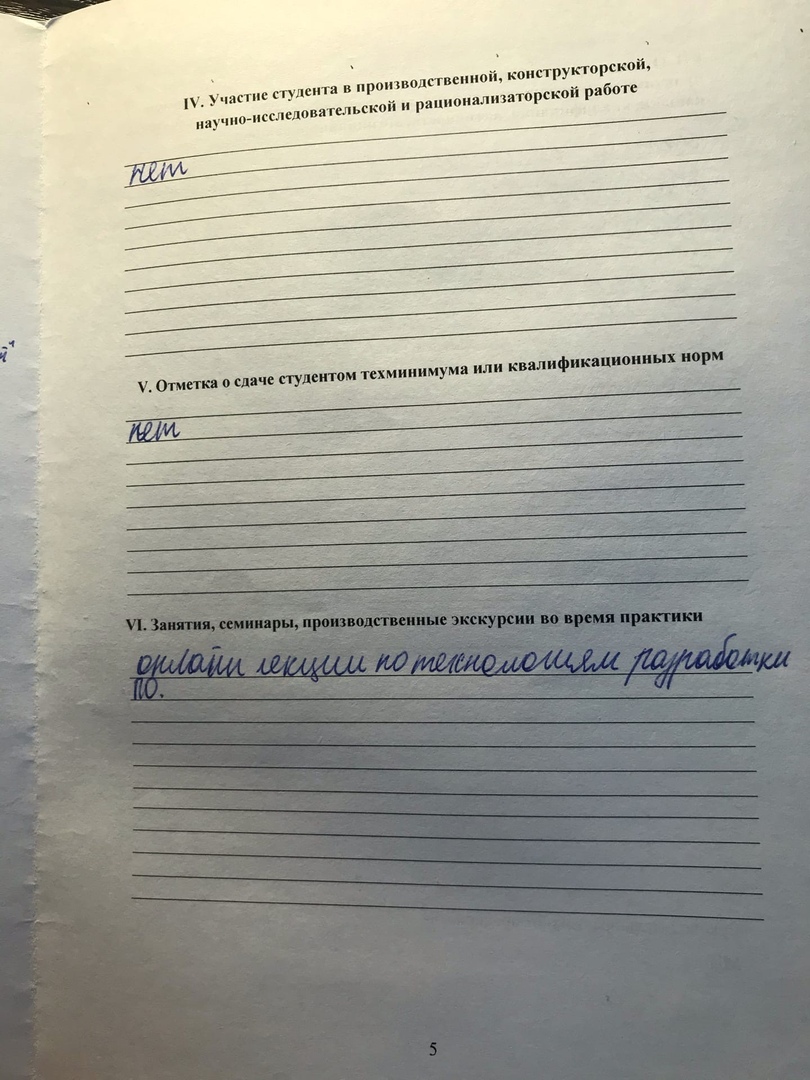 IV. Участие студента в производственной, конструкторской,
научно-исследовательской и рационализаторской работе
нет
V. Отметка о сдаче студентом техминимума или квалификационных норм
нет
VI. Занятия, семинары, производственные экскурсии во время практики
онлайн лекции по технологиям разработки
ПО.
5